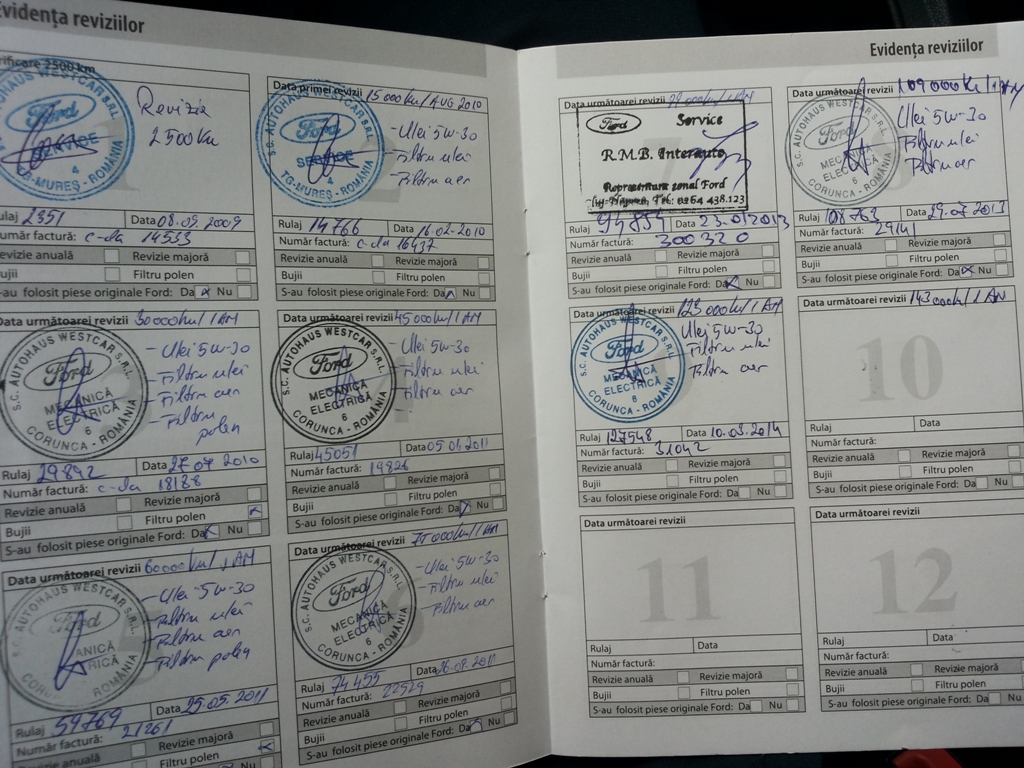 Evidența reviziilor
Verificare 2500 km
S.C. AUTOHAUS WESTCAR S.R.L.
Ford
SERVICE
4
TG-MUREȘ - ROMÂNIA
Revizie
2500 Km
Rulaj 2351 Data 08.09.2009
Număr factură: c-da 14533
Revizie anuală Revizie majoră
Bujii Filtru polen
S-au folosit piese originale Ford: Da Nu
Data primei revizii 15000 km/AUG 2010
S.C. AUTOHAUS WESTCAR S.R.L.
Ford
SERVICE
4
TG-MUREȘ - ROMÂNIA
- Ulei 5w-30
- Filtru ulei
- Filtru aer
Rulaj 14766 Data 16.02.2010
Număr factură: c-da 16437
Revizie anuală Revizie majoră
Bujii Filtru polen
S-au folosit piese originale Ford: Da Nu
Data următoarei revizii 30000 km/1AN
S.C. AUTOHAUS WESTCAR S.R.L.
Ford
MECANICĂ
ELECTRICĂ
6
CORUNCA - ROMÂNIA
- Ulei 5w-30
- Filtru ulei
- Filtru aer
- Filtru polen
Rulaj 29892 Data 27.07.2010
Număr factură: c-da 18188
Revizie anuală Revizie majoră
Bujii Filtru polen
S-au folosit piese originale Ford: Da Nu
Data următoarei revizii 45000 km/1AN
S.C. AUTOHAUS WESTCAR S.R.L.
Ford
MECANICĂ
ELECTRICĂ
6
CORUNCA - ROMÂNIA
- Ulei 5w-30
- Filtru ulei
- Filtru aer
Rulaj 45051 Data
Număr factură: 19826
Revizie anuală Revizie majoră
Bujii Filtru polen
S-au folosit piese originale Ford: Da Nu
Data următoarei revizii 60000 km/1AN
S.C. AUTOHAUS WESTCAR S.R.L.
Ford
MECANICĂ
ELECTRICĂ
CORUNCA - ROMÂNIA
- Ulei 5w-30
- Filtru ulei
- Filtru aer
- Filtru polen
Rulaj 59769 Data 25.05.2011
Număr factură: 21261
Revizie anuală Revizie majoră
Bujii Filtru polen
S-au folosit piese originale Ford: Da Nu
Data următoarei revizii 75000 km/1AN
S.C. AUTOHAUS WESTCAR S.R.L.
Ford
MECANICĂ
ELECTRICĂ
6
CORUNCA - ROMÂNIA
- Ulei 5w-30
- Filtru ulei
- Filtru aer
Rulaj 74455 Data
Număr factură: 22529
Revizie anuală Revizie majoră
Bujii Filtru polen
S-au folosit piese originale Ford: Da Nu
Evidența reviziilor
Data următoarei revizii
Ford Service
R.M.B. Interauto
Reprezentanta zonal Ford
Tel: 0264 438.123
Rulaj Data 23.01.2013
Număr factură: 300320
Revizie anuală Revizie majoră
Bujii Filtru polen
S-au folosit piese originale Ford: Da Nu
Data următoarei revizii 109000 km/1AN
S.C. AUTOHAUS WESTCAR S.R.L.
Ford
MECANICĂ
ELECTRICĂ
6
CORUNCA - ROMÂNIA
- Ulei 5w-30
- Filtru ulei
- Filtru aer
Rulaj 108763 Data 29.07.2013
Număr factură: 29141
Revizie anuală Revizie majoră
Bujii Filtru polen
S-au folosit piese originale Ford: Da Nu
Data următoarei revizii 123000 km/1AN
S.C. AUTOHAUS WESTCAR S.R.L.
Ford
MECANICĂ
ELECTRICĂ
6
CORUNCA - ROMÂNIA
- Ulei 5w-30
- Filtru ulei
- Filtru aer
Rulaj 127548 Data 10.03.2014
Număr factură: 31042
Revizie anuală Revizie majoră
Bujii Filtru polen
S-au folosit piese originale Ford: Da Nu
Data următoarei revizii 143000 km/1 AN
10
Rulaj Data
Număr factură:
Revizie anuală Revizie majoră
Bujii Filtru polen
S-au folosit piese originale Ford: Da Nu
Data următoarei revizii
11
Rulaj Data
Număr factură:
Revizie anuală Revizie majoră
Bujii Filtru polen
S-au folosit piese originale Ford: Da Nu
Data următoarei revizii
12
Rulaj Data
Număr factură:
Revizie anuală Revizie majoră
Bujii Filtru polen
S-au folosit piese originale Ford: Da Nu